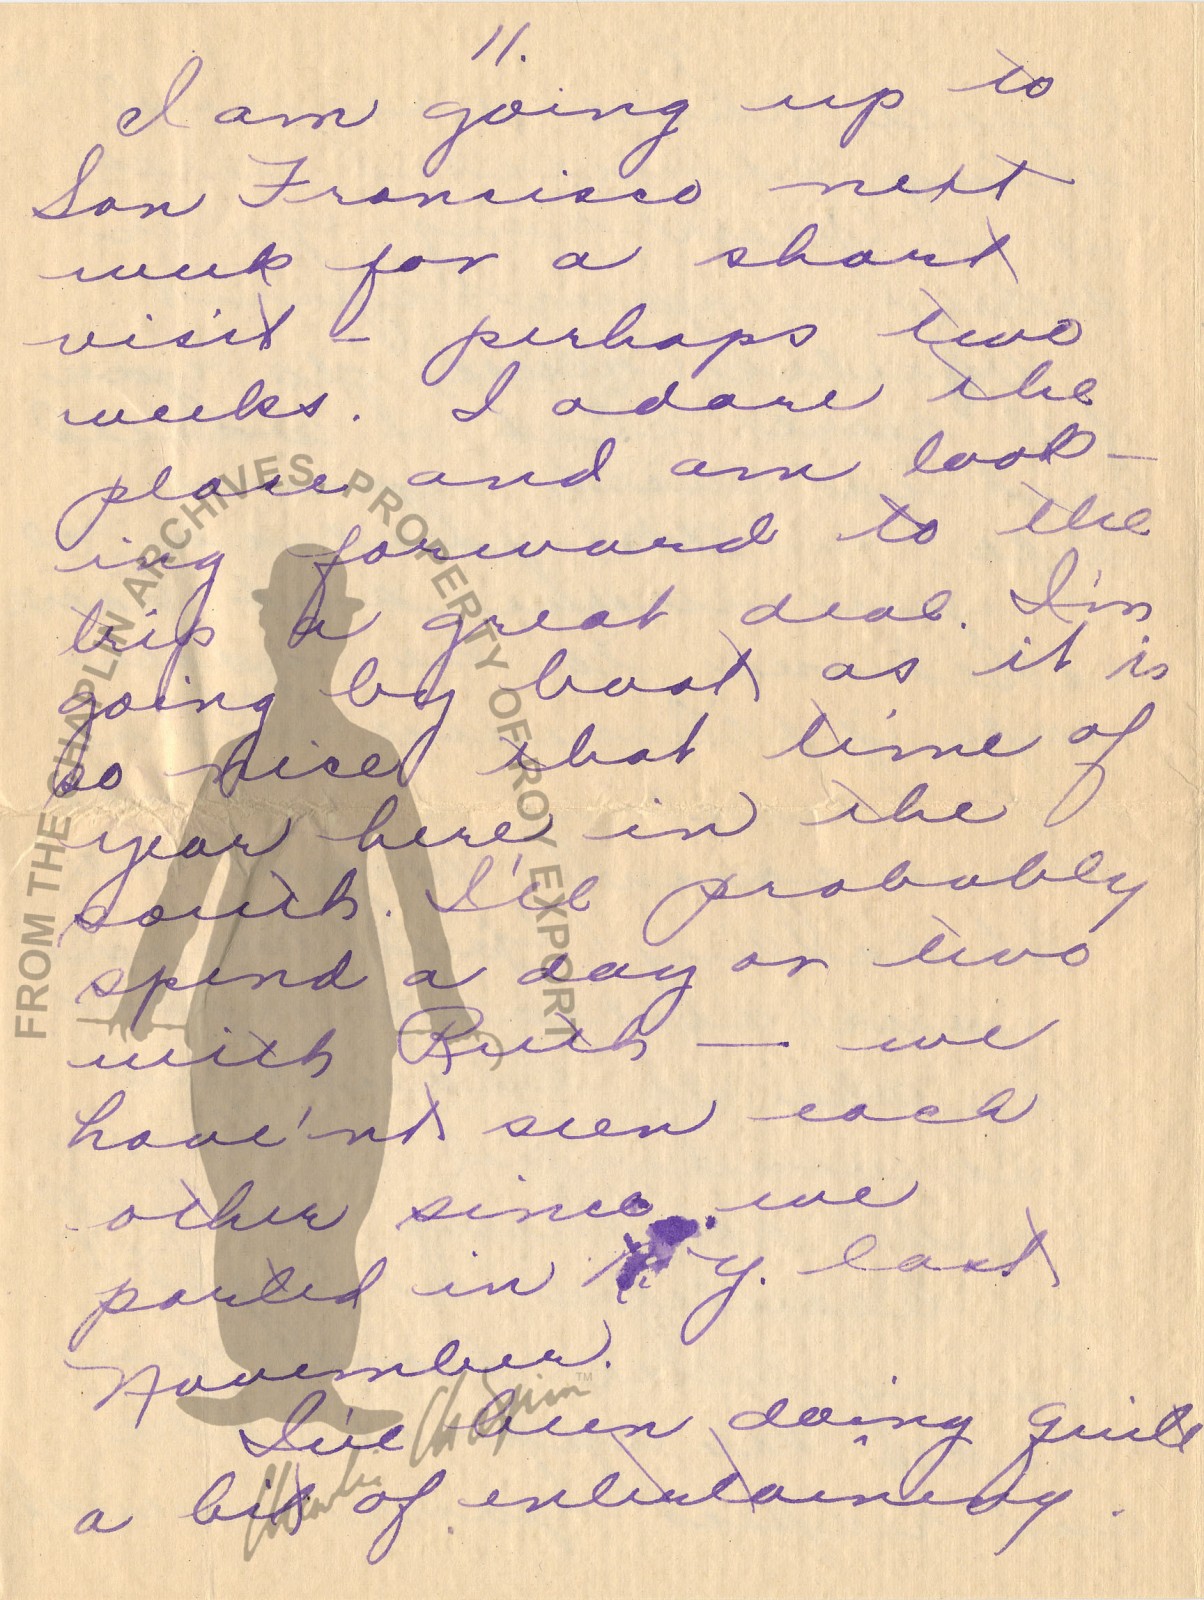 11.
I am going up to
San Francisco next
week for a short
visit – perhaps two
weeks. I adore the
place and am look-
ing forward to the
trip a great deal. I'm
going by boat as it is
so nice that time of
year here in the
south. I'll probably
spend a day or two
with Ruth — we
have'nt seen each
other since we
parted in N.Y. last
November.
I've been doing quite
a bit of entertaining.
FROM THE CHAPLIN ARCHIVES, PROPERTY OF ROY EXPORT
Charlie Chaplin™